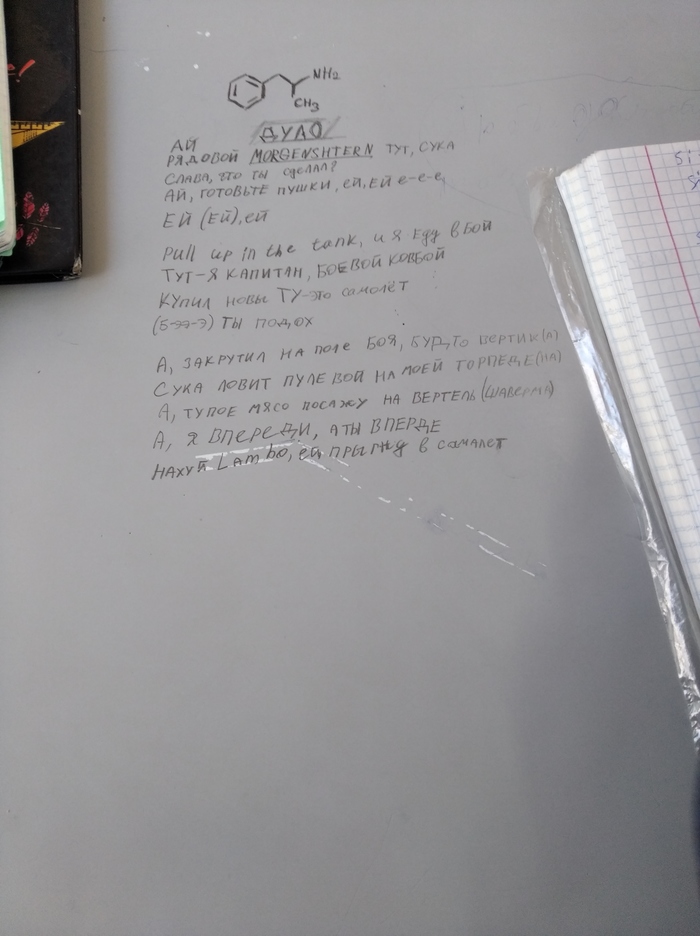 NH₂
CH₃
ДУЛО
АЙ
РЯДОВОЙ MORGENSHTERN ТУТ, СУКА
СЛАВА, ЧТО ТЫ СДЕЛАЛ?
АЙ, ГОТОВЬТЕ ПУШКИ, ЕЙ, ЕЙ е-е-е
ЕЙ (ЕЙ), ЕЙ
Pull up in the tank, и я еду в БОЙ
ТУТ-Я КАПИТАН, БОЕВОЙ КОВБОЙ
КУПИЛ НОВЫЕ ТУ-ЭТО САМОЛЁТ
(Б-ЭЭ-Э) ТЫ ПОДОХ
А, ЗАКРУТИЛ НА ПОЛЕ БОЯ, БУДТО ВЕРТИК(А)
СУКА ЛОВИТ ПУЛЕВОЙ НА МОЕЙ ТОРПЕДЕ(НА)
А, ТУПОЕ МЯСО ПОСАЖУ НА ВЕРТЕЛЬ(ШАВЕРМА)
А, Я ВПЕРЕДИ, А ТЫ ВПЕРДЕ
НАХУЙ Lambo, ЕЙ, ПРЫГНУ В САМАЛЕТ